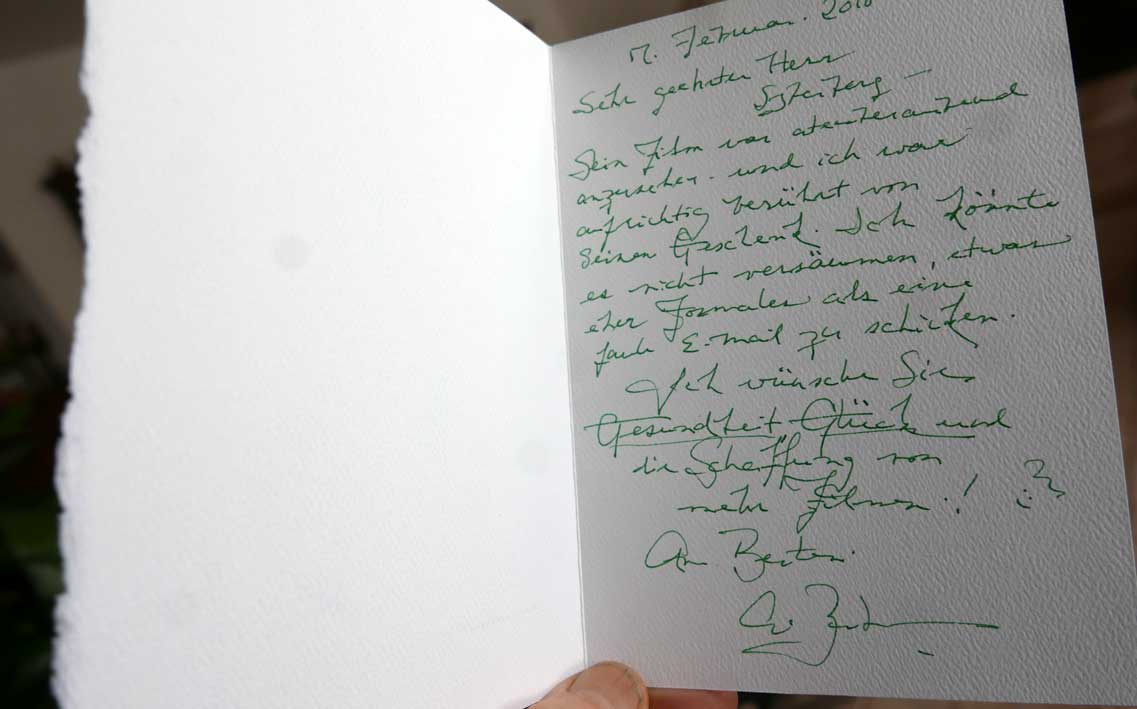 Februar. 2010
Sehr geehrter Herr
Sein Film war atemberaubend
anzusehen. und ich war
aufrichtig berührt von
Seinen Geschenk. Ich könnte
es nicht versäumen, etwas
eher Formales als eine
faule E-mail zu schicken.
Ich wünsche Sie
Gesundheit Glück und
die Schaffung von
mehr Filmen.!
Am Besten.